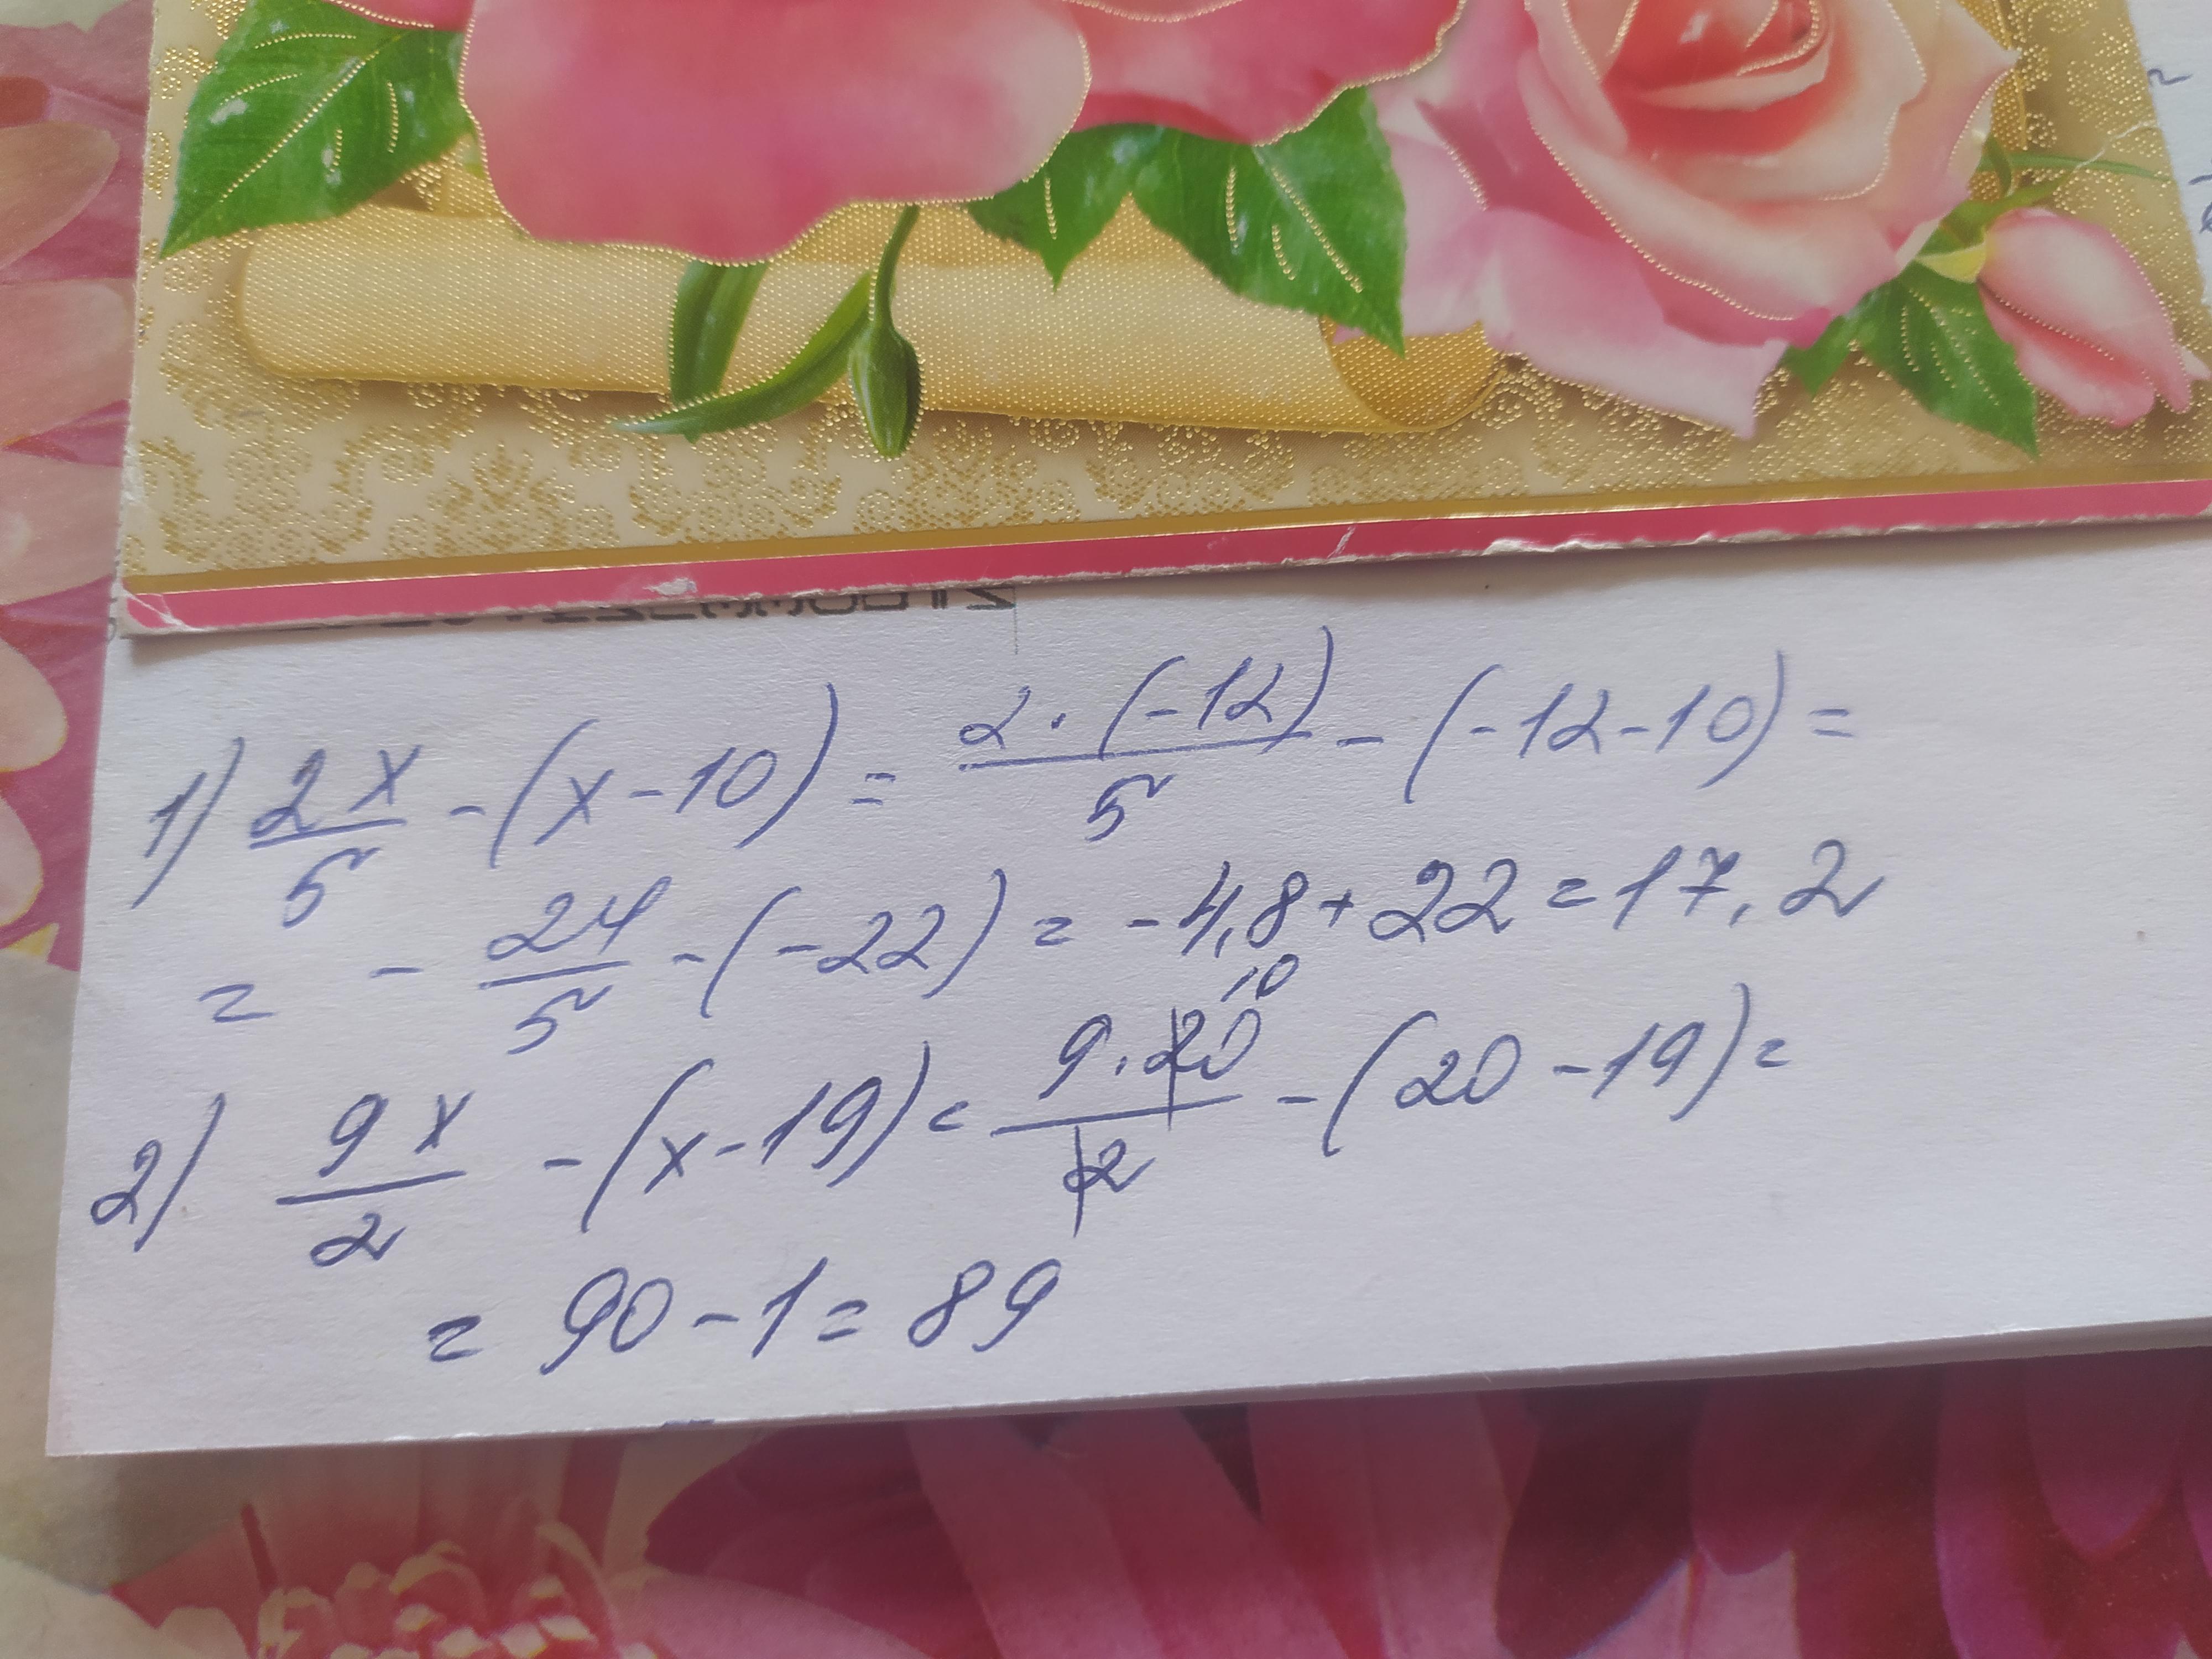 1) 2x/5 - (x - 10) = 2·(-12)/5 - (-12 - 10) =
= - 24/5 - (-22) = -4,8 + 22 = 17,2
10
2) 9x/2 - (x - 19) = 9·20/2 - (20 - 19) =
= 90 - 1 = 89